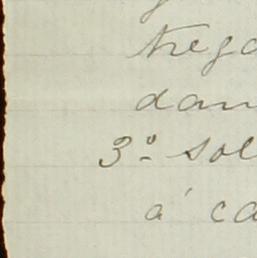 trega
dan
3º sol
á ca